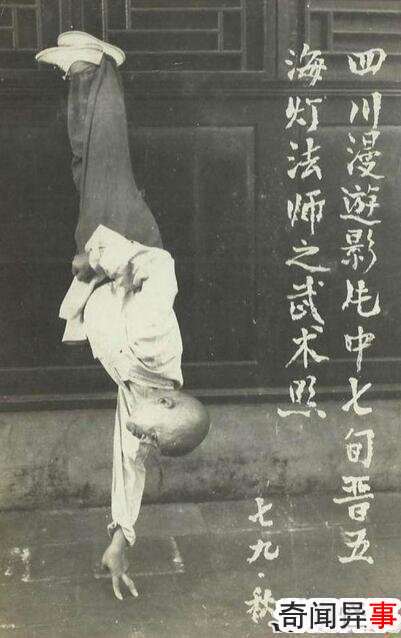 四川漫遊影片中七旬晋五
海灯法师之武术照
七九·秋
奇闻异事